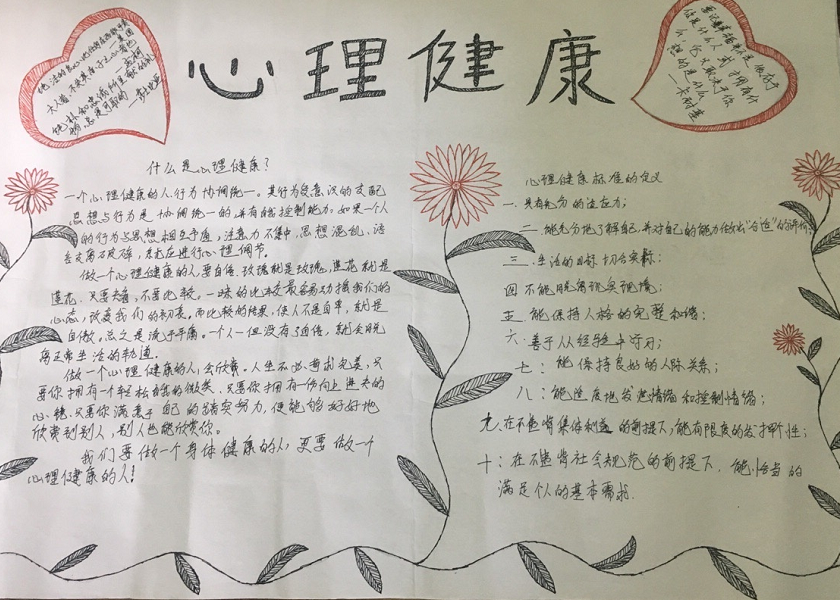 心理健康
什么是心理健康?
一个心理健康的人,行为协调统一。其行为受意识的支配
思想与行为是协调统一的,并有自我控制能力。如果一个人
的行为与思想相互矛盾,注意力不集中,思想混乱,语
言支离破碎,就应进行心理调节。
做一个心理健康的人,要自信。玫瑰就是玫瑰,莲花就是
莲花,只要去看,不要比较。一味的比较最容易动摇我们的
心态,改变我们的初衷。而比较的结果,使人不是自卑,就是
自傲,总之是流于平庸。一个人一但没有了自信,就会脱
离正常生活的轨道。
做一个心理健康的人,会欣赏。人生不必苛求完美,只
要你拥有一个轻松自若的微笑,只要你拥有一份向上进取的
心境,只要你满意于自己的踏实努力,便能够好好地
欣赏别人,别人也能欣赏你。
我们要做一个身体健康的人,更要做一个
心理健康的人!
心理健康标准的定义
一.具有充分的适应力;
二.能充分地了解自己,并对自己的能力作出"合适"的评价;
三.生活的目标切合实际;
四.不能脱离现实环境;
五.能保持人格的完整和谐;
六.善于从经验中学习;
七:能保持良好的人际关系;
八:能适度地发泄情绪和控制情绪;
九.在不违背集体利益的前提下,能有限度的发挥个性;
十:在不违背社会规范的前提下,能恰当的
满足个人的基本需求.